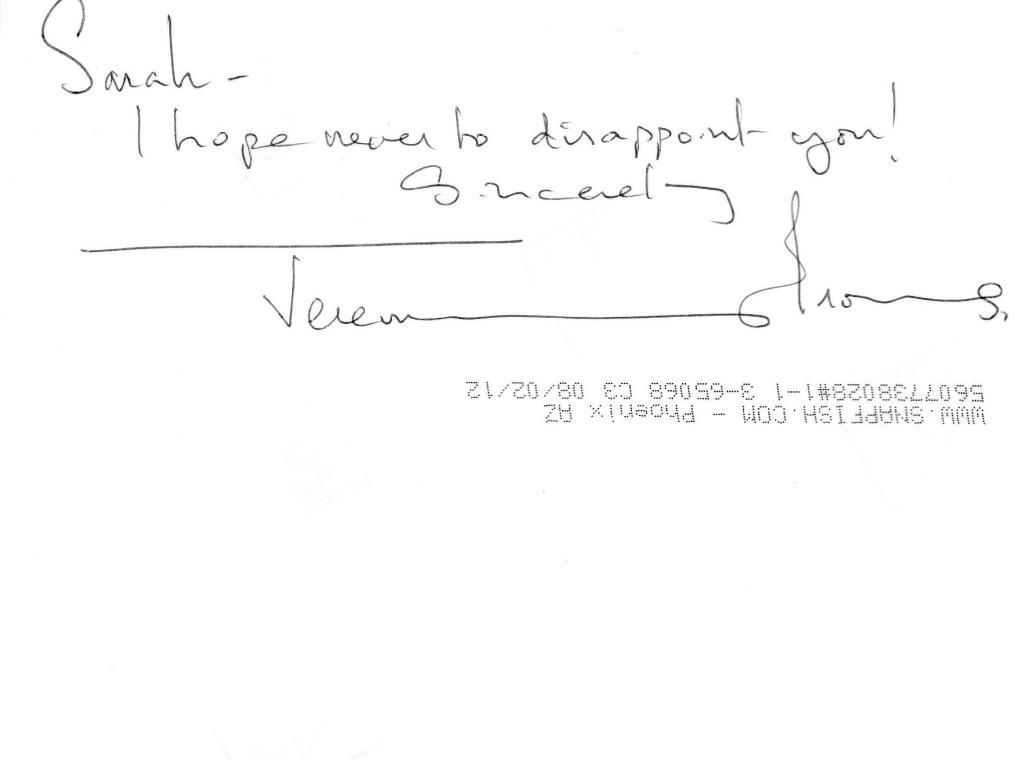 Sarah -
I hope never to disappoint you!
Sincerely
Jeremy Irons.
WWW.SNAPFISH.COM - Phoenix AZ
5607738028#1-1 3-65068 C3 08/02/12